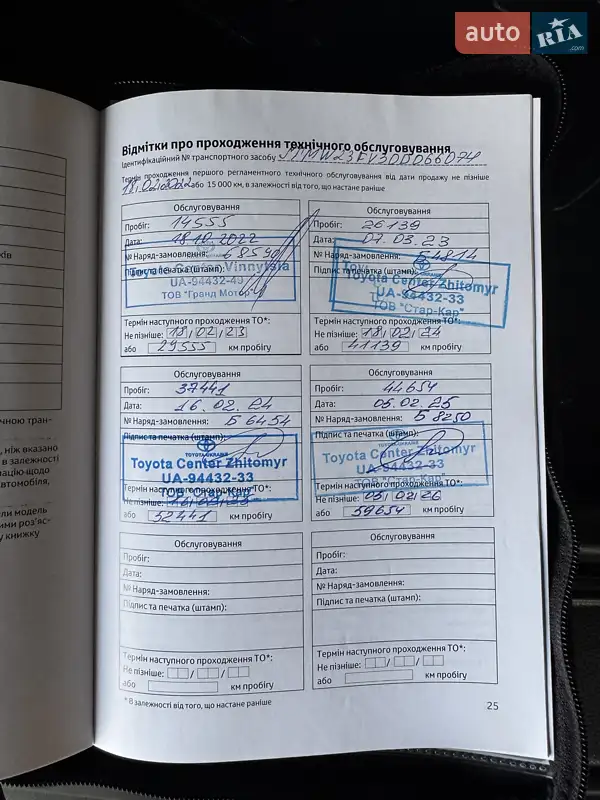 auto RIA .com
Відмітки про проходження технічного обслуговування
Ідентифікаційний № транспортного засобу
Термін проходження першого регламентного технічного обслуговування від дати продажу не пізніше
18,02,2022 або 15 000 км, в залежності від того, що настане раніше
Обслуговування
Пробіг: 14555
Дата: 18.10.2022
№ Наряд-замовлення: 68590
Підпис та печатка (штамп):
Toyota Center Vinnytsia
UA-94432-40
ТОВ "Гранд Мотор"
Термін наступного проходження ТО*:
Не пізніше: 18/02/23
або 29555 км пробігу
Обслуговування
Пробіг: 26139
Дата: 07.03.23
№ Наряд-замовлення: Б4814
Підпис та печатка (штамп):
Toyota Center Zhitomyr
UA-94432-33
ТОВ "Стар-Кар"
Термін наступного проходження ТО*:
Не пізніше: 18/02/24
або 41139 км пробігу
Обслуговування
Пробіг: 37441
Дата: 16.02.24
№ Наряд-замовлення: Б6454
Підпис та печатка (штамп):
TOYOTA-УКРАЇНА
Toyota Center Zhitomyr
UA-94432-33
ТОВ "Стар-Кар"
Термін наступного проходження ТО*:
Не пізніше: 16/02/25
або 52441 км пробігу
Обслуговування
Пробіг: 44654
Дата: 05.02.25
№ Наряд-замовлення: Б8250
Підпис та печатка (штамп):
TOYOTA-УКРАЇНА
Toyota Center Zhitomyr
UA-94432-33
ТОВ "Стар-Кар"
Термін наступного проходження ТО*:
Не пізніше: 05/02/26
або 59654 км пробігу
Обслуговування
Пробіг:
Дата:
№ Наряд-замовлення:
Підпис та печатка (штамп):
Термін наступного проходження ТО*:
Не пізніше: / /
або км пробігу
Обслуговування
Пробіг:
Дата:
№ Наряд-замовлення:
Підпис та печатка (штамп):
Термін наступного проходження ТО*:
Не пізніше: / /
або км пробігу
* В залежності від того, що настане раніше
25
ків
ичною тран-
, ніж вказано
в залежності
ацію щодо
автомобіля,
ли модель
ими роз'яс-
у книжку